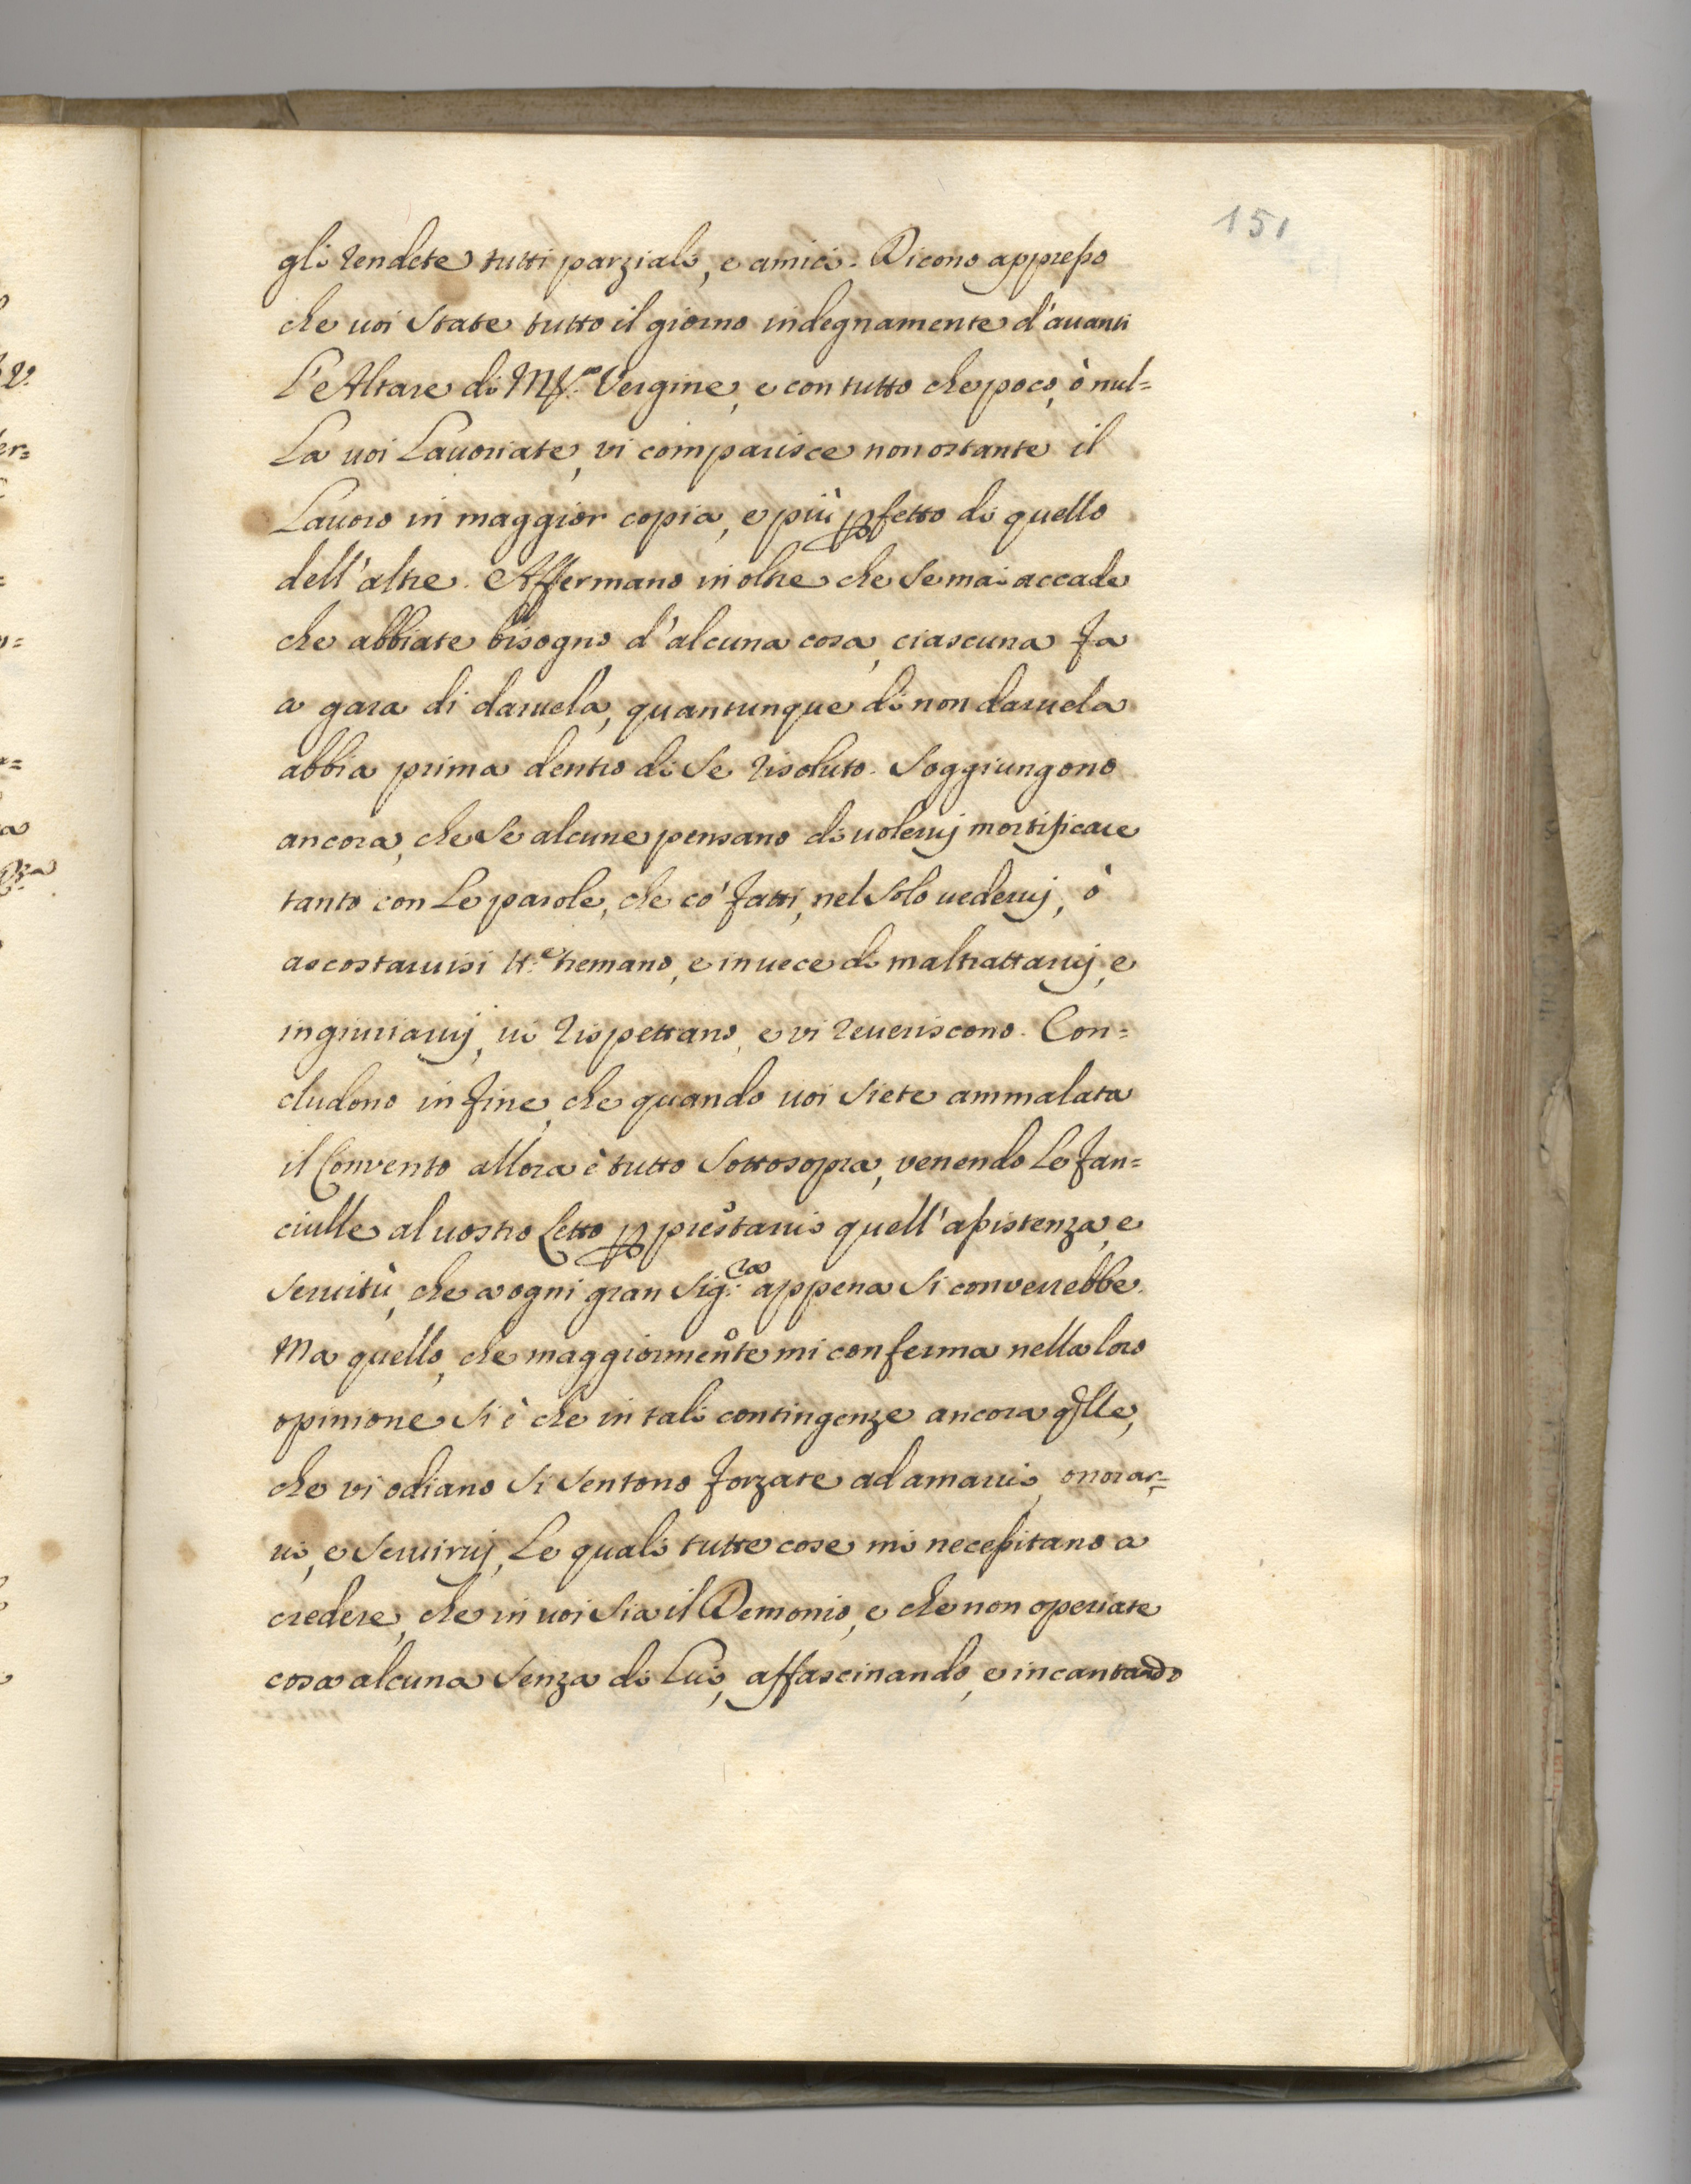 151
gli rendete tutti parziali, e amici. Dicono appresso
che uoi state tutto il giorno indegnamente d'auanti
l'Altare di M.ª Vergine, e con tutto che poco, ò nul=
la uoi lauoriate, vi comparisce non ostante il
lauoro in maggior copia, e più pfetto di quello
dell'altre. Affermano in oltre che se mai accade
che abbiate bisogno d'alcuna cosa, ciascuna fa
a gara di daruela, quantunque di non daruela
abbia prima dentro di se risoluto. Soggiungono
ancora, che se alcune pensano di uoleruj mortificare
tanto con le parole, che co' fatti, nel solo uederuj, ò
accostaruisi tremano, e inuece di maltrattaruj, e
ingiuriaruj, ui rispettano, e vi reueriscono. Con=
cludono in fine, che quando uoi siete ammalata
il Convento allora è tutto sottosopra, venendo le fan=
ciulle al uostro letto p prestarui quell'assistenza, e
seruitù, che a ogni gran Sig.ra appena si converrebbe.
Ma quello, che maggiormẽte mi conferma nella loro
opinione si è che in tali contingenze ancora qlle,
che vi odiano si sentono forzate ad amarui, onorar=
ui, e seruiruj, le quali tutte cose mi necessitano a
credere, che in uoi sia il Demonio, e che non operiate
cosa alcuna senza di lui, affascinando, e incantando